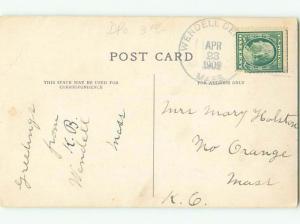 DPO
POST CARD
WENDELL
APR
23
1909
MASS.
THIS SPACE MAY BE USED FOR
CORRESPONDENCE
FOR ADDRESS ONLY
Greetings
from
K. B.
Wendell
Mass
Mrs Mary Holston
No Orange
Mass